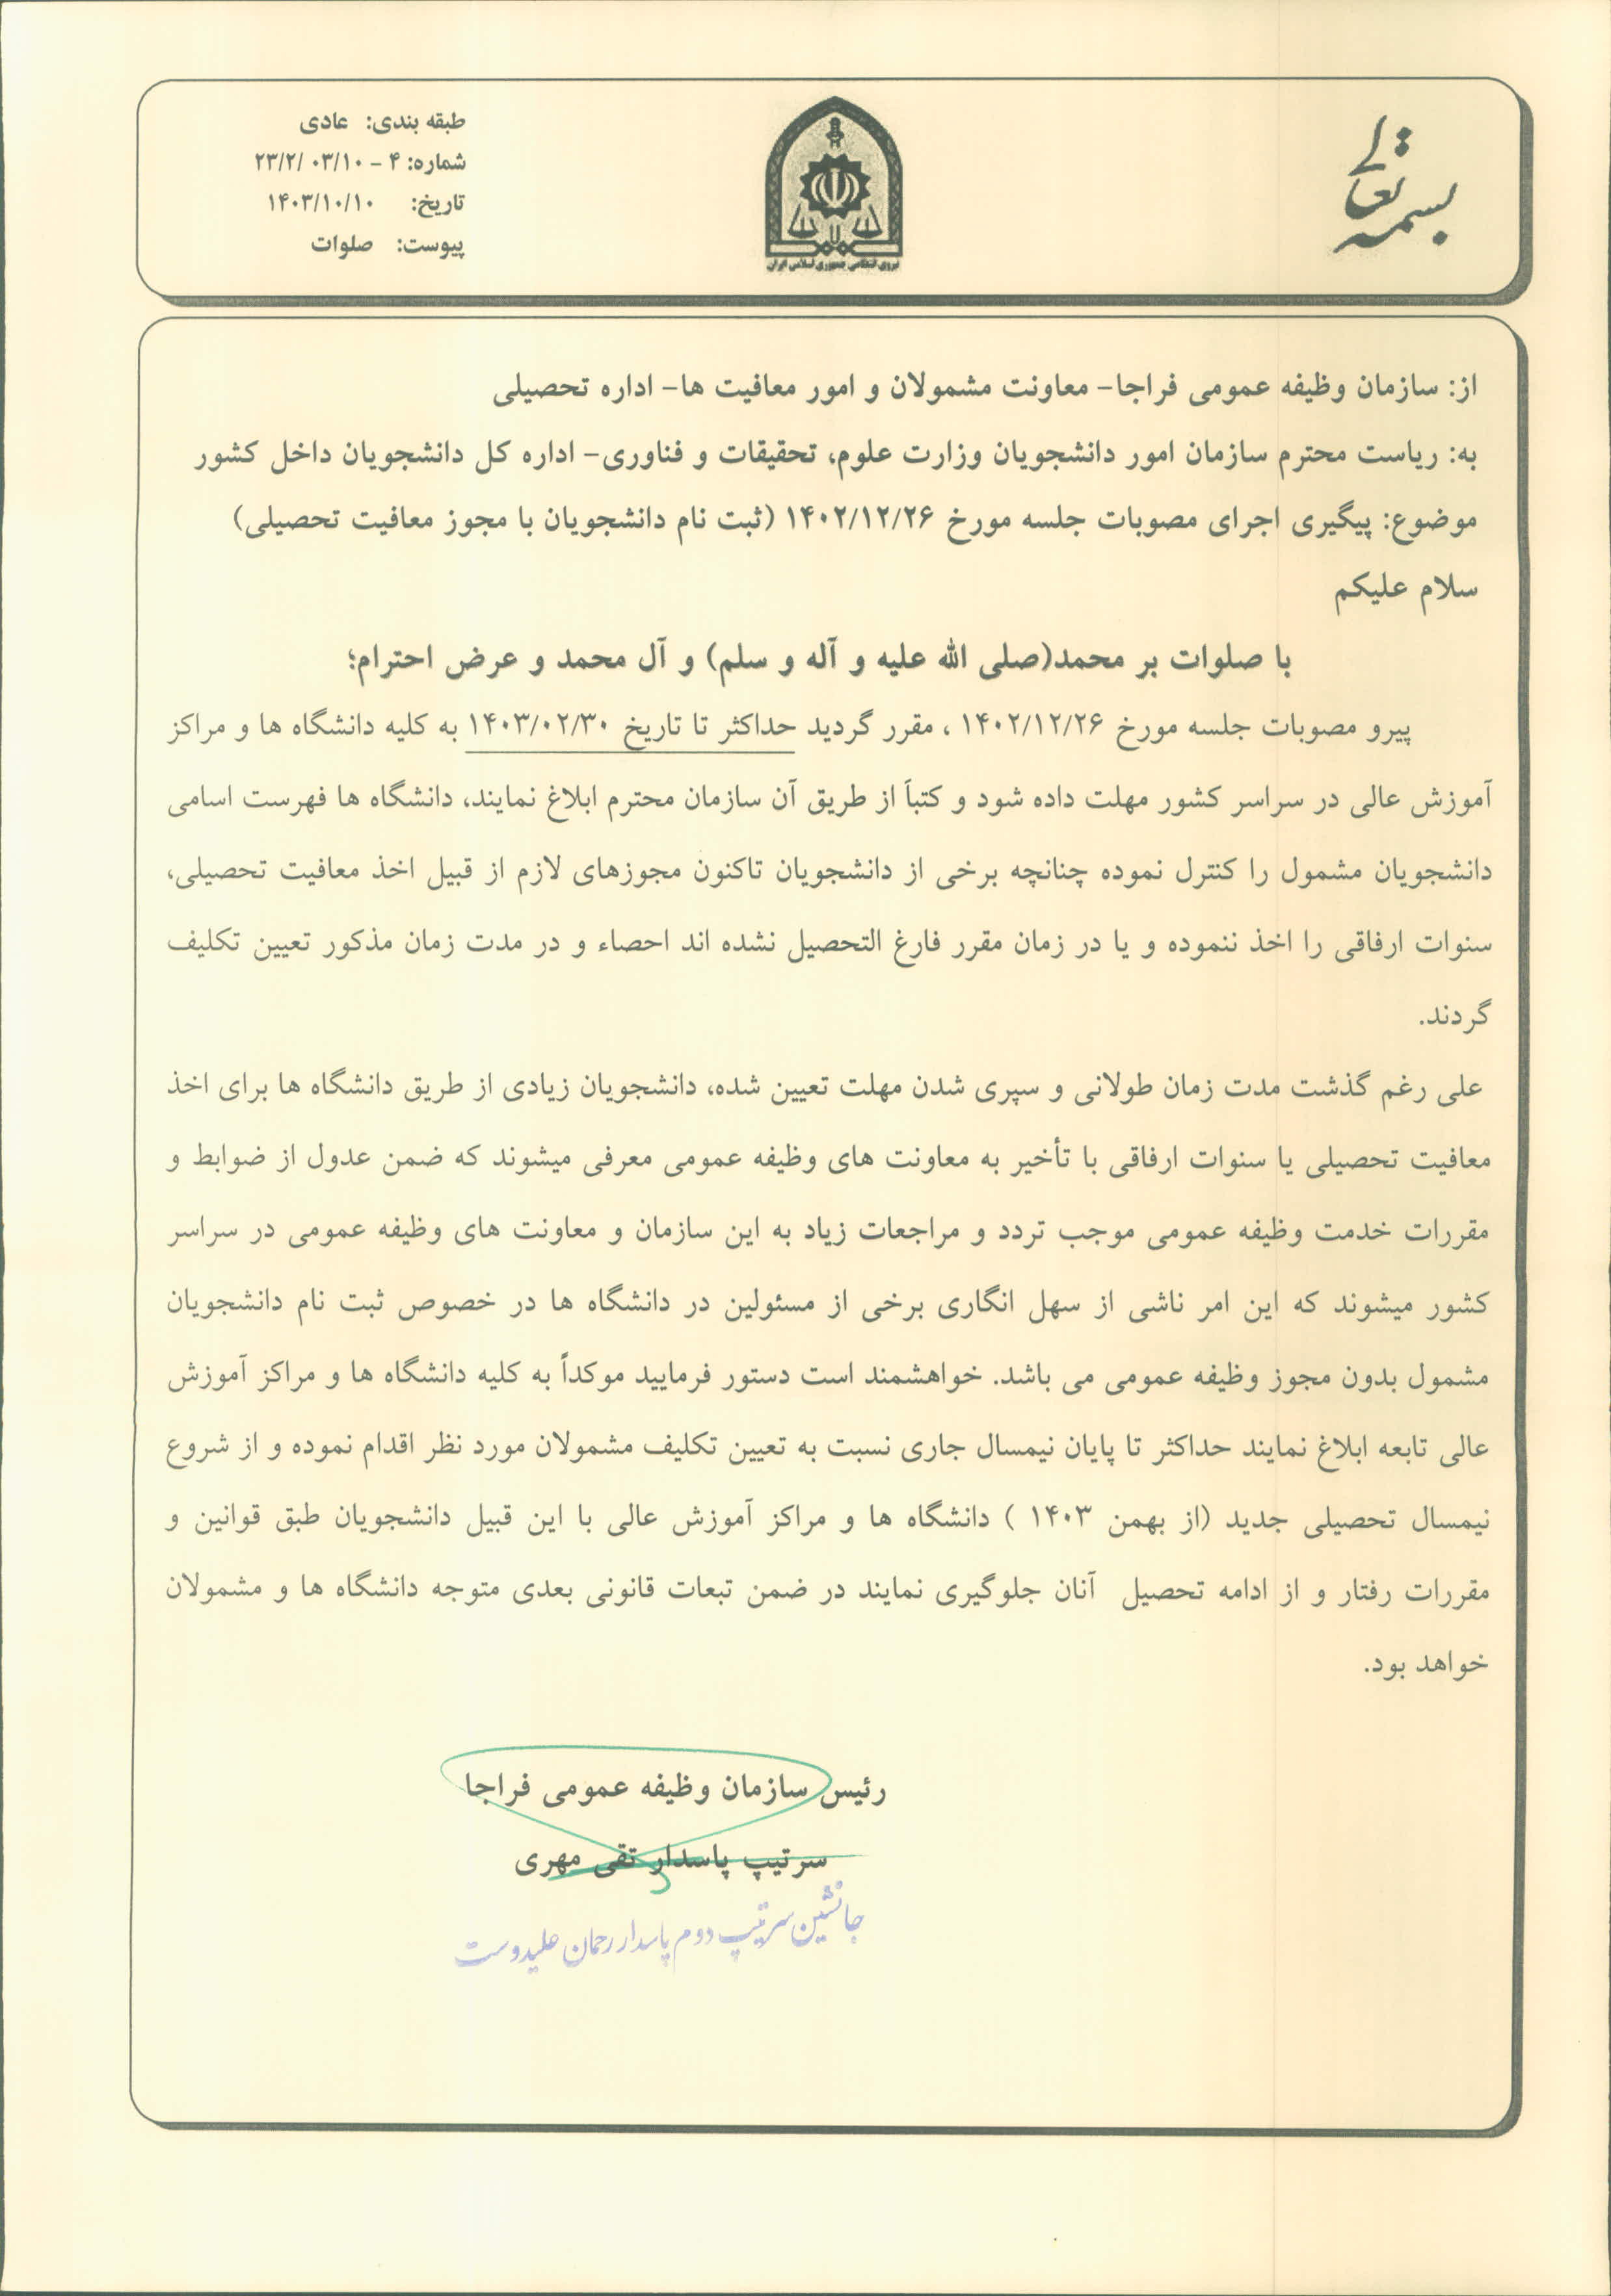 بسمه تعالی
طبقه بندی: عادی
شماره: ۴ - ۰۳/۱۰ /۲۳/۲
تاریخ: ۱۴۰۳/۱۰/۱۰
پیوست: صلوات
نیروی انتظامی جمهوری اسلامی ایران
از: سازمان وظیفه عمومی فراجا- معاونت مشمولان و امور معافیت ها- اداره تحصیلی
به: ریاست محترم سازمان امور دانشجویان وزارت علوم، تحقیقات و فناوری- اداره کل دانشجویان داخل کشور
موضوع: پیگیری اجرای مصوبات جلسه مورخ ۱۴۰۲/۱۲/۲۶ (ثبت نام دانشجویان با مجوز معافیت تحصیلی)
سلام علیکم
با صلوات بر محمد(صلی الله علیه و آله و سلم) و آل محمد و عرض احترام؛
پیرو مصوبات جلسه مورخ ۱۴۰۲/۱۲/۲۶ ، مقرر گردید حداکثر تا تاریخ ۱۴۰۳/۰۲/۳۰ به کلیه دانشگاه ها و مراکز
آموزش عالی در سراسر کشور مهلت داده شود و کتباً از طریق آن سازمان محترم ابلاغ نمایند، دانشگاه ها فهرست اسامی
دانشجویان مشمول را کنترل نموده چنانچه برخی از دانشجویان تاکنون مجوزهای لازم از قبیل اخذ معافیت تحصیلی،
سنوات ارفاقی را اخذ ننموده و یا در زمان مقرر فارغ التحصیل نشده اند احصاء و در مدت زمان مذکور تعیین تکلیف
گردند.
علی رغم گذشت مدت زمان طولانی و سپری شدن مهلت تعیین شده، دانشجویان زیادی از طریق دانشگاه ها برای اخذ
معافیت تحصیلی یا سنوات ارفاقی با تأخیر به معاونت های وظیفه عمومی معرفی میشوند که ضمن عدول از ضوابط و
مقررات خدمت وظیفه عمومی موجب تردد و مراجعات زیاد به این سازمان و معاونت های وظیفه عمومی در سراسر
کشور میشوند که این امر ناشی از سهل انگاری برخی از مسئولین در دانشگاه ها در خصوص ثبت نام دانشجویان
مشمول بدون مجوز وظیفه عمومی می باشد. خواهشمند است دستور فرمایید موکداً به کلیه دانشگاه ها و مراکز آموزش
عالی تابعه ابلاغ نمایند حداکثر تا پایان نیمسال جاری نسبت به تعیین تکلیف مشمولان مورد نظر اقدام نموده و از شروع
نیمسال تحصیلی جدید (از بهمن ۱۴۰۳ ) دانشگاه ها و مراکز آموزش عالی با این قبیل دانشجویان طبق قوانین و
مقررات رفتار و از ادامه تحصیل آنان جلوگیری نمایند در ضمن تبعات قانونی بعدی متوجه دانشگاه ها و مشمولان
خواهد بود.
رئیس سازمان وظیفه عمومی فراجا
سرتیپ پاسدار تقی مهری
جانشین سرتیپ دوم پاسدار رحمان علیدوست